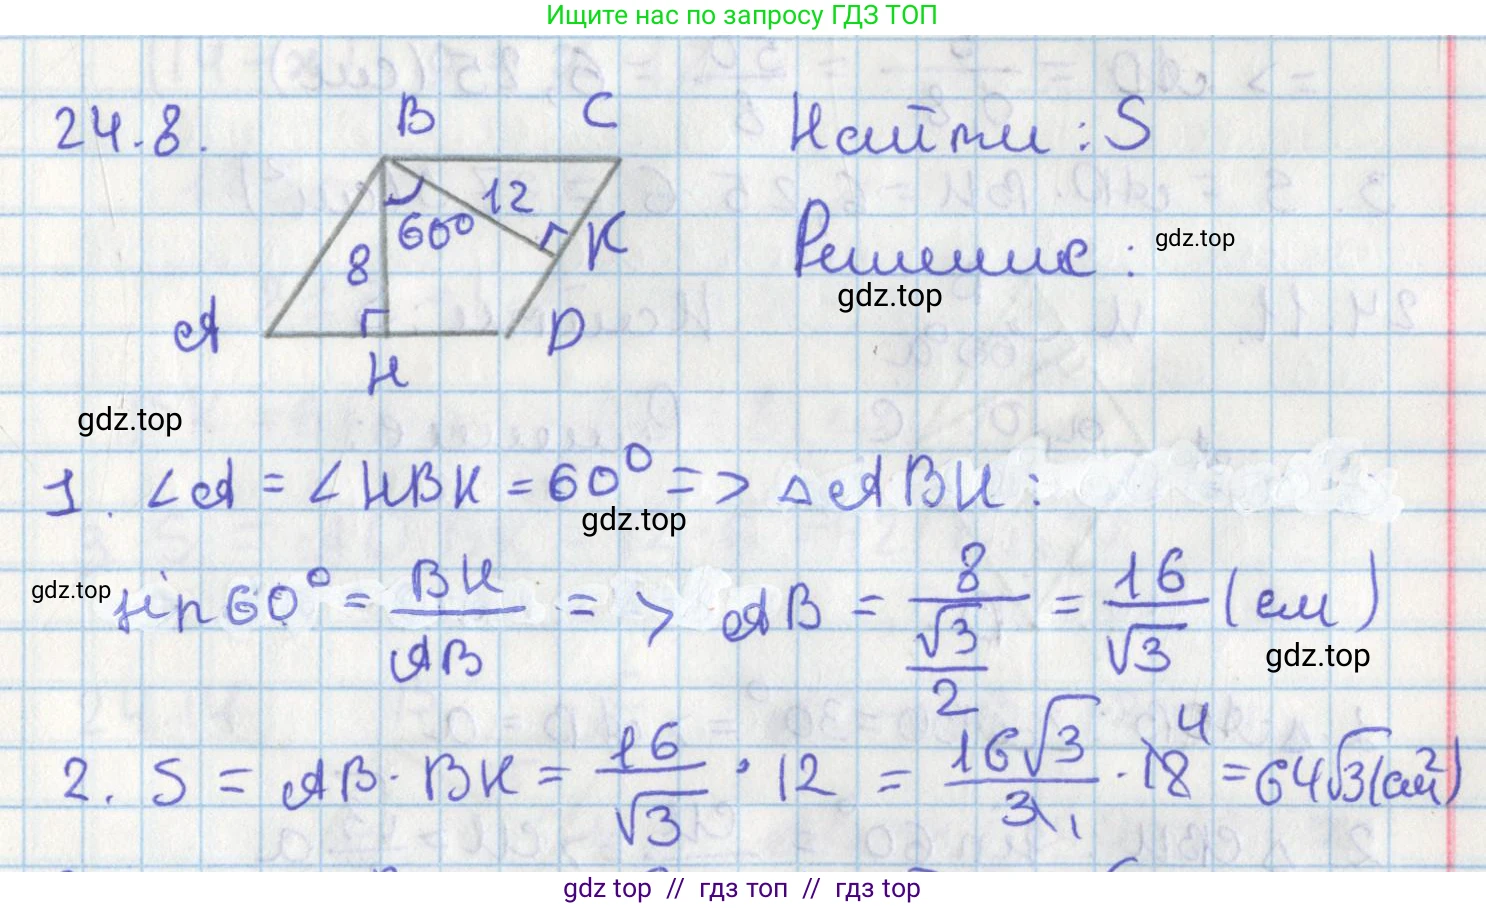 Ищите нас по запросу ГДЗ ТОП
24.8.
B C
12
60° K
8
A H D
Найти: S
Решение:
gdz.top
gdz.top
gdz.top
1. ∠A = ∠HBK = 60° => △ABH:
gdz.top
gdz.top
sin 60° = BH/AB => AB = 8/(√3/2) = 16/√3 (см)
gdz.top
2. S = AB · BK = 16/√3 · 12 = 16√3/3 1 · 18 4 = 64√3 (см²)
gdz top // гдз топ // гдз top